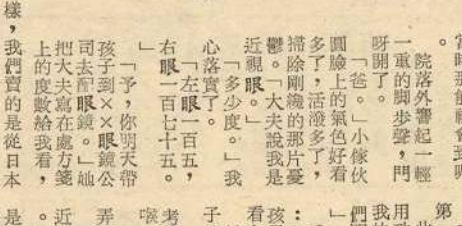 。
院落外響起一輕
一重的脚步聲,門
呀開了。
「爸。」小傢伙
圓臉上的氣色好看
多了,活潑多了,
掃除剛纔的那片憂
鬱。「大夫說我是
近視眼。」
「多少度。」我
心落實了。
「左眼一百五,
右眼一百七十五。
」
「予,你明天帶
孩子到××眼鏡公
司去配眼鏡。」她
把大夫寫在處方箋
上的度數給我看,
樣,我們賣的是從日本
第
我的
們
」
:
孩
看
子
考
喉
弄
近
。
是